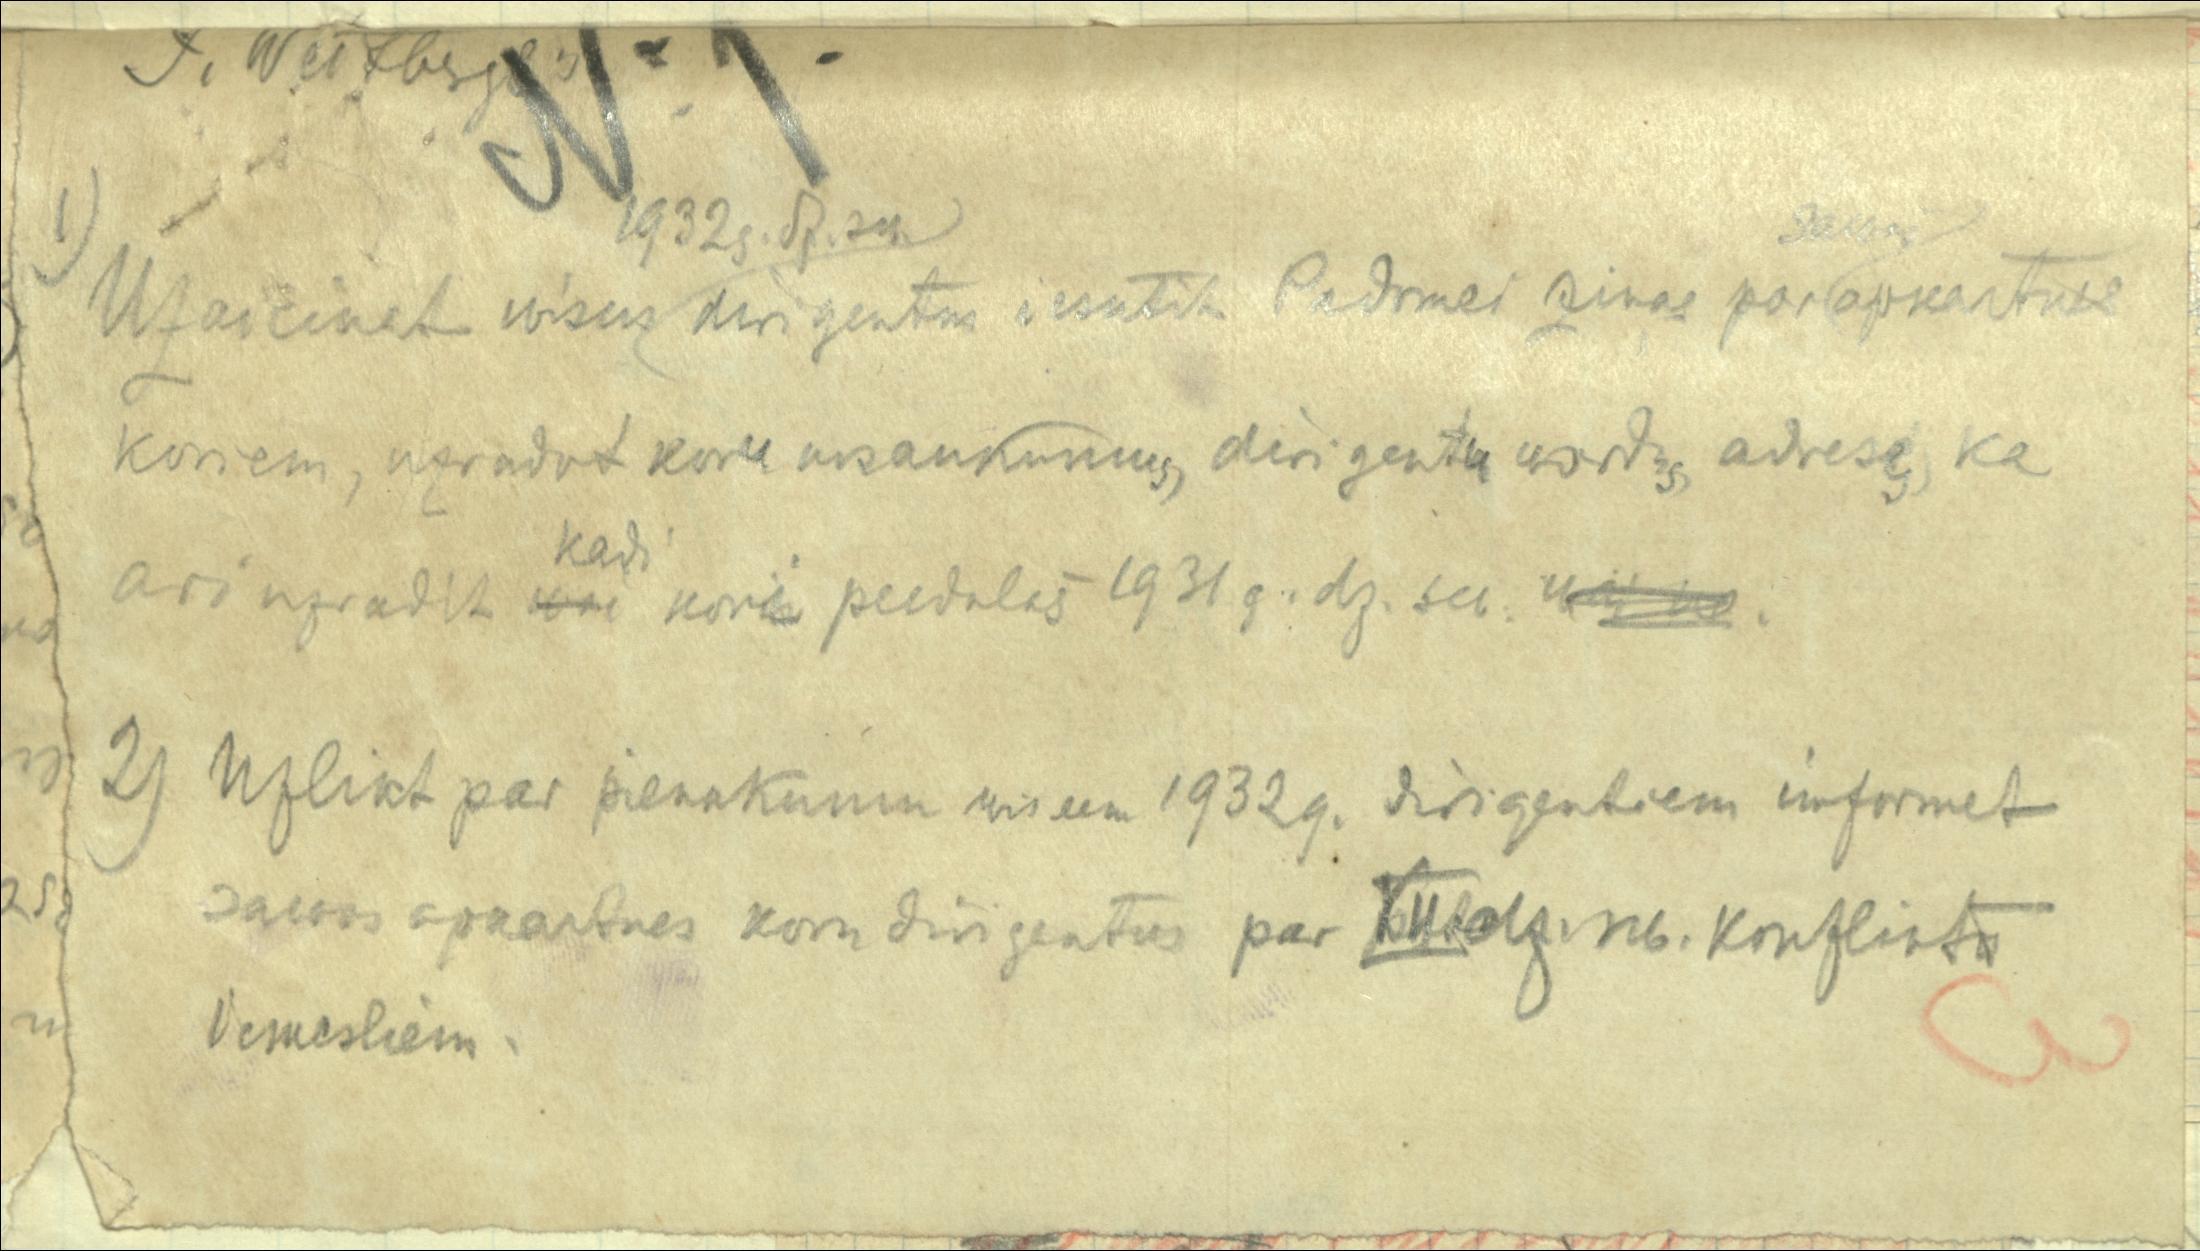 J. Weitbergs
N. 1.
1)
1932g. dz. sw.
sawas
Uzaicinat wisus dirigentus iesutit Padomei ziņas par apkartnes
koriem, uzradot koru nosaukumus, dirigentu wardus, adreses, ka
kadi
ari uzradit kori peedalas 1931 g. dz. sw.
2) Uzlikt par pienakumu wiseem 1932g. dirigentiem informet
sawas apkartnes koru dirigentus par VII dz. sw. konflikta
iemesliem.